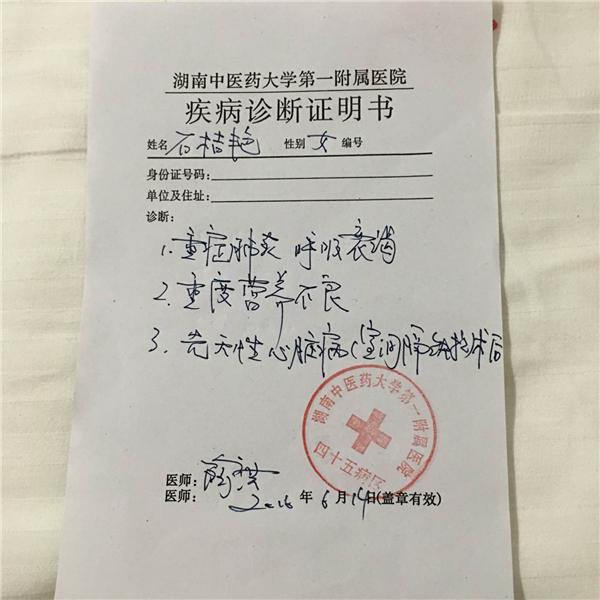 湖南中医药大学第一附属医院
疾病诊断证明书
姓名 石桔艳 性别 女 编号
身份证号码:
单位及住址:
诊断:
1. 重症肺炎 呼吸衰竭
2. 重度营养不良
3. 先天性心脏病(室间隔缺损术后
湖南中医药大学第一附属医院
四十五病区
医师:
医师: 2016年6月14日(盖章有效)